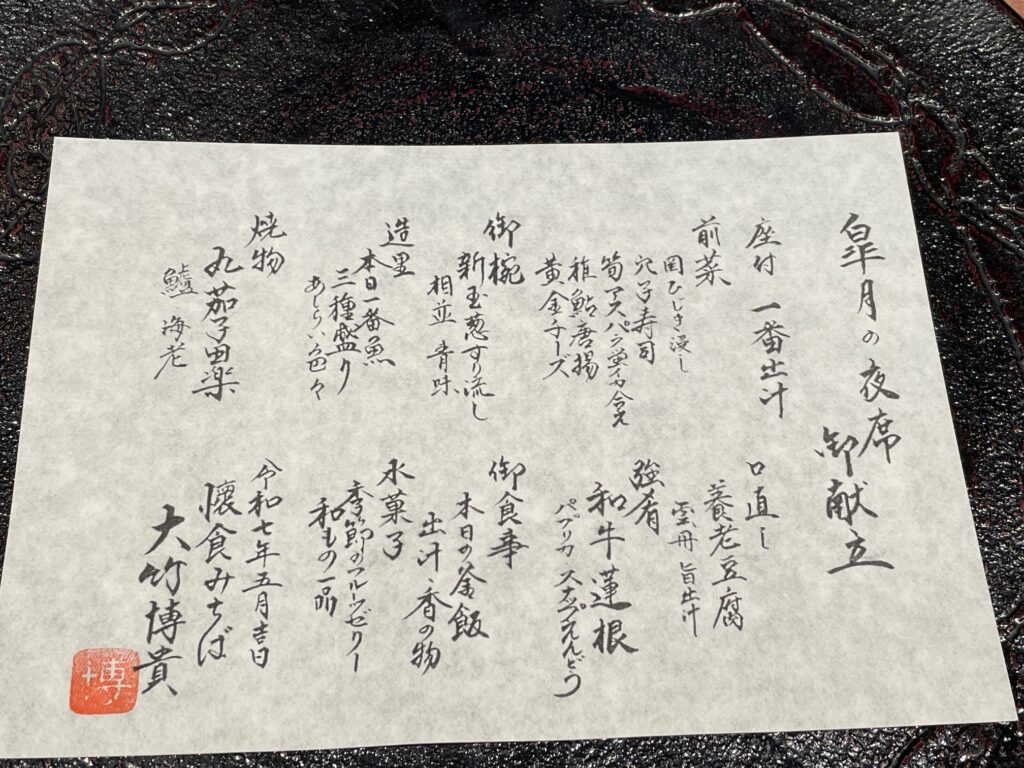 皐月の夜席
御献立
座付 一番出汁
前菜
岡ひじき浸し
穴子寿司
筍アスパラ 合え
稚鮎唐揚
黄金チーズ
御椀
新玉葱すり流し
相並 青味
造里
本日一番魚
三種盛り
あしらい色々
焼物
丸茄子田楽
鱸 海老
口直し
養老豆腐
雲丹 旨出汁
強肴
和牛 蓮根
パプリカ スナップえんどう
御食事
本日の釜飯
出汁、香の物
水菓子
季節のフルーツゼリー
和もの一品
令和七年五月吉日
懐食みちば
大竹博貴
博